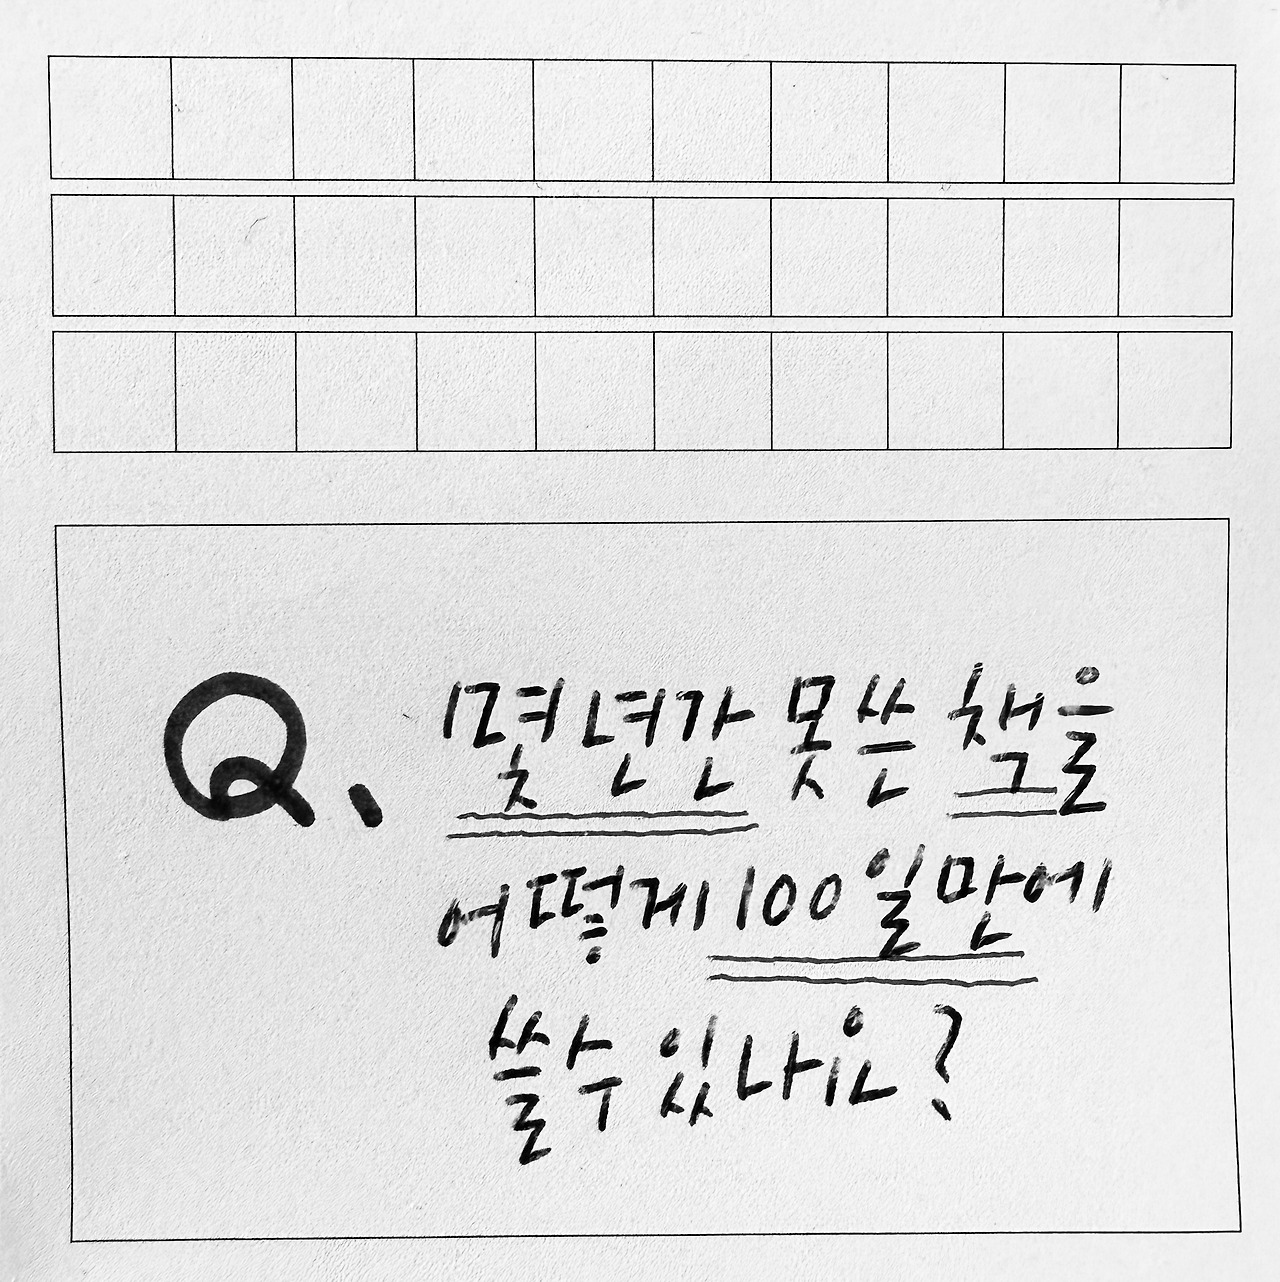 Q. 몇 년간 못 쓴 책을
어떻게 100일만에
쓸 수 있나요?